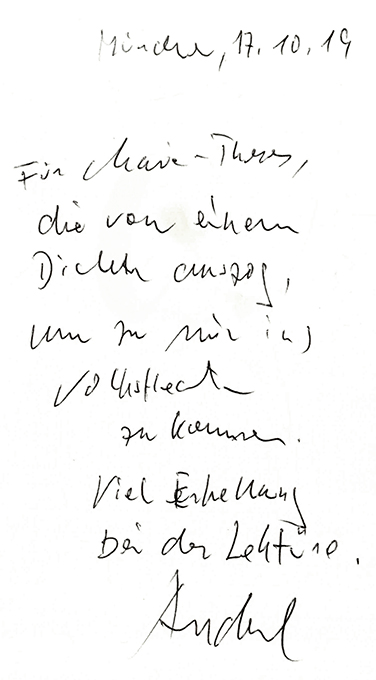 München, 17.10.19
Für Marie-Theres,
die von einem
Dichter auszog,
um zu mir ins
zu kommen.
Viel Erhellung
bei der Lektüre.